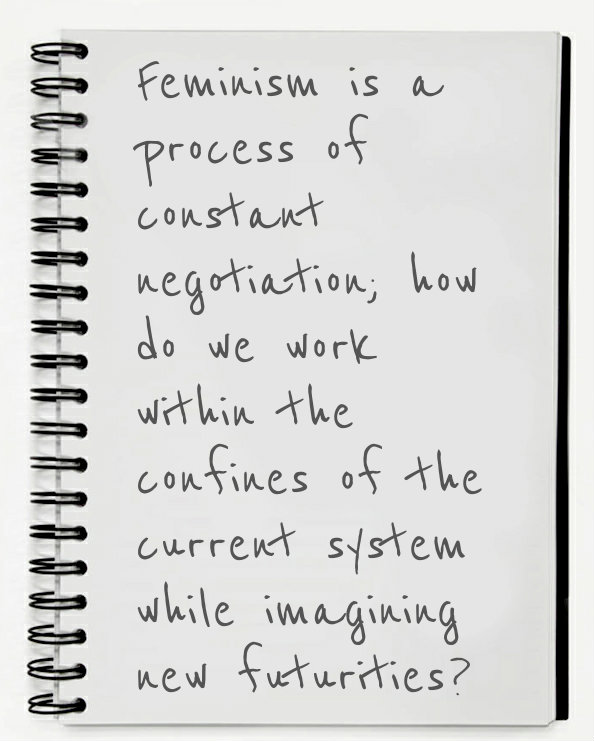 Feminism is a
process of
constant
negotiation; how
do we work
within the
confines of the
current system
while imagining
new futurities?